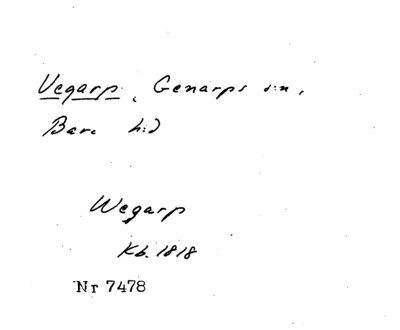 Vegarp, Genarps sn,
Bara hd
Wegarp
Kb. 1818
Nr 7478